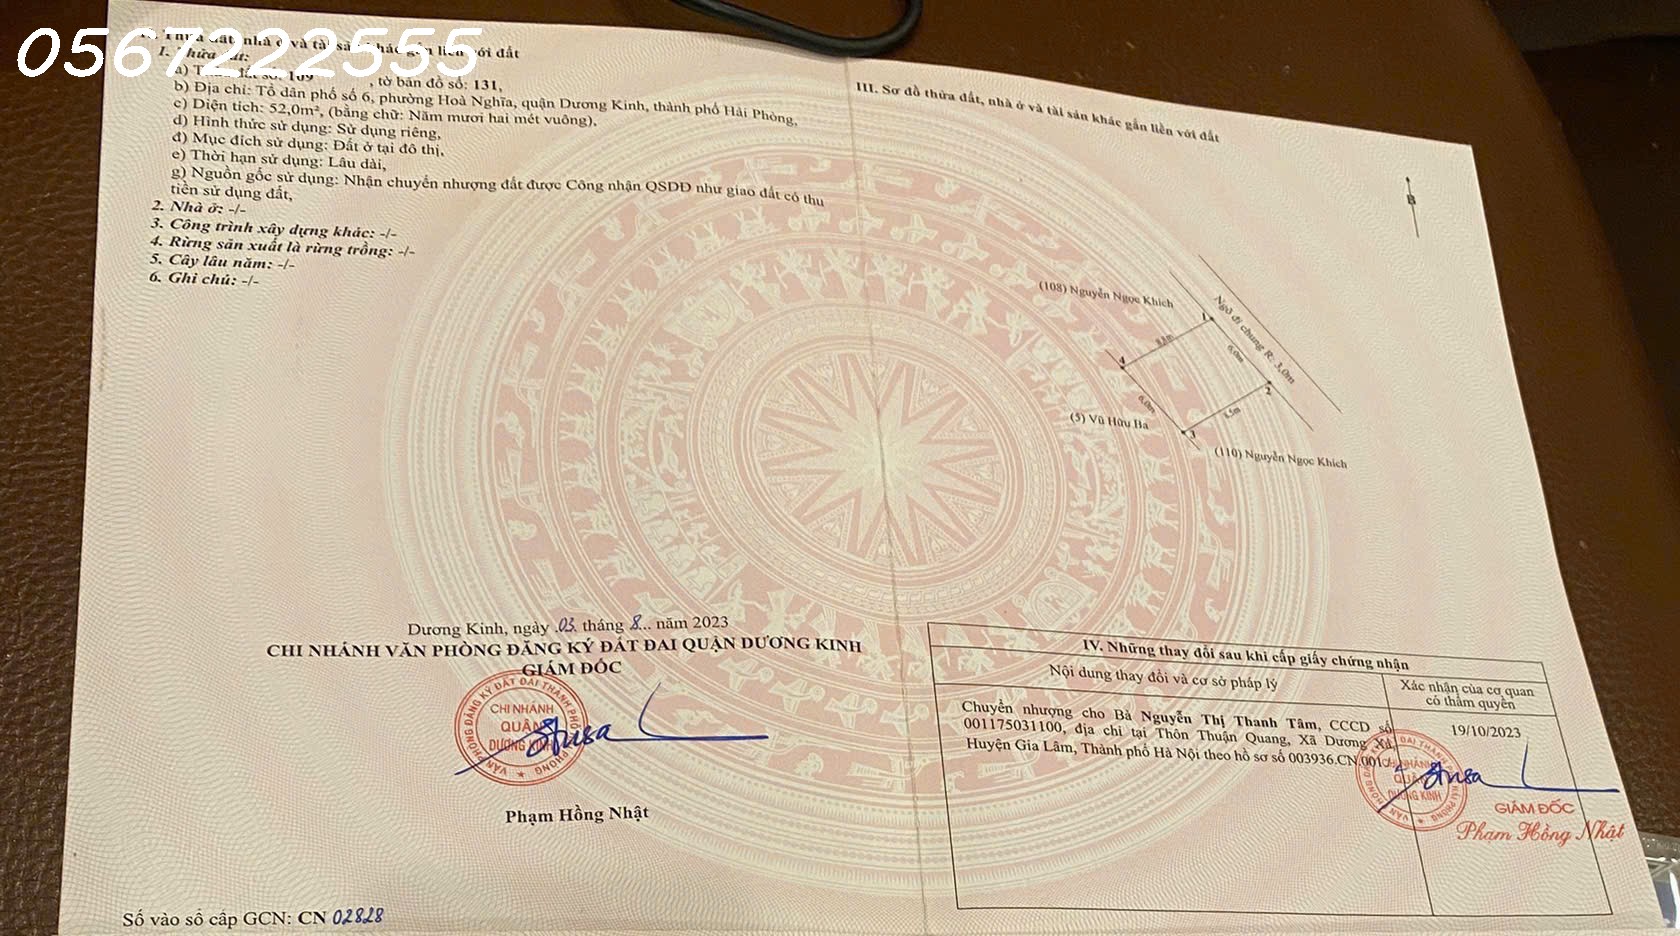 0567222555
II. Thửa đất, nhà ở và tài sản khác gắn liền với đất
1. Thửa đất:
a) Thửa đất số: 109, tờ bản đồ số: 131,
b) Địa chỉ: Tổ dân phố số 6, phường Hoà Nghĩa, quận Dương Kinh, thành phố Hải Phòng,
c) Diện tích: 52,0m², (bằng chữ: Năm mươi hai mét vuông),
d) Hình thức sử dụng: Sử dụng riêng,
đ) Mục đích sử dụng: Đất ở tại đô thị,
e) Thời hạn sử dụng: Lâu dài,
g) Nguồn gốc sử dụng: Nhận chuyển nhượng đất được Công nhận QSDĐ như giao đất có thu
tiền sử dụng đất,
2. Nhà ở: -/-
3. Công trình xây dựng khác: -/-
4. Rừng sản xuất là rừng trồng: -/-
5. Cây lâu năm: -/-
6. Ghi chú: -/-
Dương Kinh, ngày 03 tháng 8 năm 2023
CHI NHÁNH VĂN PHÒNG ĐĂNG KÝ ĐẤT ĐAI QUẬN DƯƠNG KINH
GIÁM ĐỐC
CHI NHÁNH
QUẬN
DƯƠNG KINH
Phạm Hồng Nhật
Số vào sổ cấp GCN: CN 02828
III. Sơ đồ thửa đất, nhà ở và tài sản khác gắn liền với đất
B
(108) Nguyễn Ngọc Khích
Ngõ đi chung R: 3,0m
1
6,0m
4
2
6,0m
8,5m
3
(5) Vũ Hữu Ba
(110) Nguyễn Ngọc Khích
IV. Những thay đổi sau khi cấp giấy chứng nhận
Nội dung thay đổi và cơ sở pháp lý
Xác nhận của cơ quan
có thẩm quyền
Chuyển nhượng cho Bà Nguyễn Thị Thanh Tâm, CCCD số
001175031100, địa chỉ tại Thôn Thuận Quang, Xã Dương Xá,
Huyện Gia Lâm, Thành phố Hà Nội theo hồ sơ số 003936.CN.001
19/10/2023
CHI NHÁNH
QUẬN
DƯƠNG KINH
GIÁM ĐỐC
Phạm Hồng Nhật